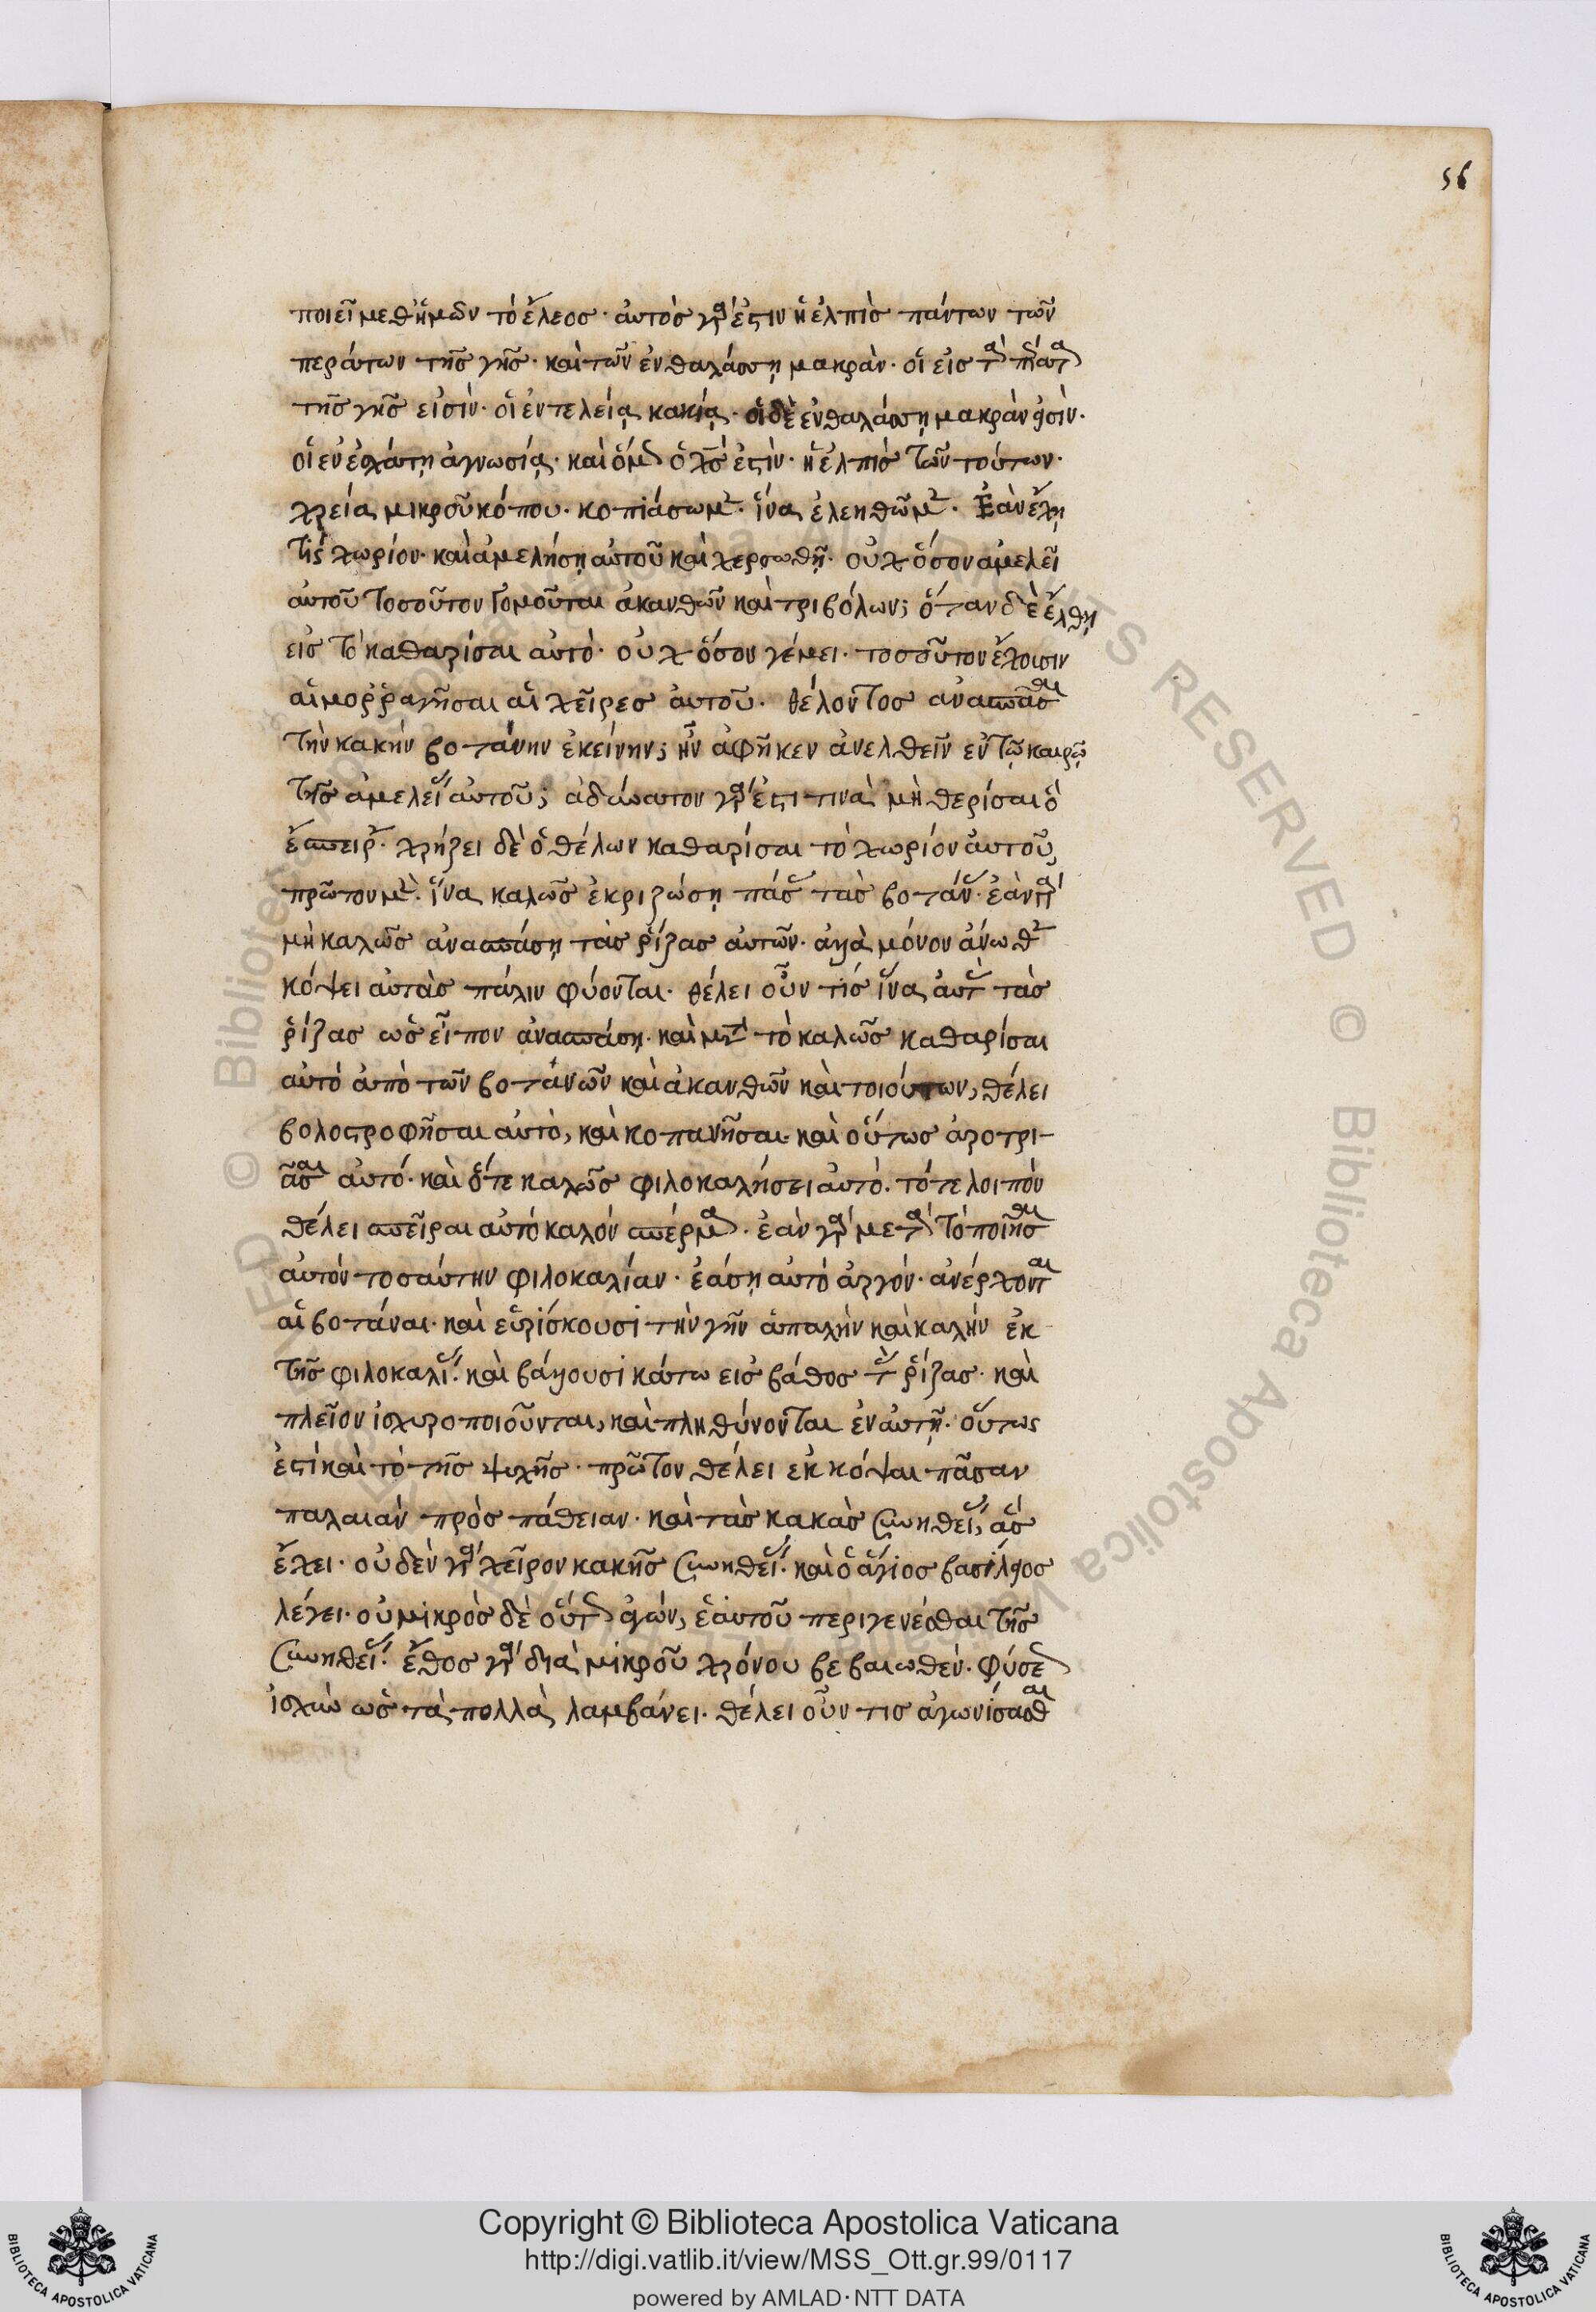 56
ποιεῖ μεθ ἡμῶν τὸ ἔλεος· ἀυτὸς γὰρ ἐστιν ἡ ἐλπὶς πάντων τῶν
περάτων τῆς γῆς· καὶ τῶν ἐν θαλάσσῃ μακρὰν· οἱ εἰς τὰ πέρατα
τῆς γῆς εἰσὶν· οἱ ἐν τελείᾳ κακίᾳ· οἱ δὲ ἐν θαλάσσῃ μακρὰν εἰσὶν·
οἱ ἐν ἐσχάτῃ ἀγνωσίᾳ· καὶ ὅμως ὁ χς ἐστὶν· ἡ ἐλπὶς τῶν τούτων·
χρεία μικροῦ κόπου· κοπιάσωμεν· ἵνα ἐλεηθῶμεν· Ἐὰν ἔχῃ
τίς χωρίον· καὶ ἀμελήσῃ αὐτοῦ καὶ χερσωθῇ· οὐχ ὅσον ἀμελεῖ
αὐτοῦ τοσοῦτον γομοῦται ἀκανθῶν καὶ τριβόλων; ὅταν δὲ ἔλθῃ
εἰς τὸ καθαρίσαι αὐτὸ· οὐχ ὅσον γέμει· τοσοῦτον ἔχουσιν
αἱμορῥαγῆσαι αἱ χεῖρες ἀυτοῦ· θέλοντος ἀνασπᾶσαι
τὴν κακὴν βοτάνην ἐκείνην; ἣν ἀφῆκεν ἀνελθεῖν ἐν τῷ καιρῷ
τῆς ἀμελείας αὐτοῦ; ἀδύνατον γὰρ ἐστι τινὰ μὴ θερίσαι ὃ
ἔσπειρεν· χρήζει δὲ ὁ θέλων καθαρίσαι τὸ χωρίον ἀυτοῦ,
πρῶτον μὲν· ἵνα καλῶς ἐκριζώσῃ πάσας τὰς βοτάνας· ἐὰν γὰρ
μὴ καλῶς ἀνασπάσῃ τὰς ῥίζας αὐτῶν· ἀλλὰ μόνον ἄνωθεν
κόψει αὐτὰς πάλιν φύονται· θέλει οὖν τίς ἵνα αὐτὰς τὰς
ῥίζας ὡς εἶπον ἀνασπάσῃ· καὶ μετὰ τὸ καλῶς καθαρίσαι
αὐτὸ ἀπὸ τῶν βοτάνων καὶ ἀκανθῶν καὶ τοιούτων, θέλει
βολοστροφῆσαι αὐτὸ, καὶ κοπανῆσαι· καὶ οὕτως ἀροτρι-
ᾶσαι αὐτό· καὶ ὅτε καλῶς φιλοκαλήσει αὐτὸ· τότε λοιπὸν
θέλει σπεῖραι αὐτὸ καλὸν σπέρμα· ἐὰν γὰρ μετὰ τὸ ποιῆσαι
αὐτὸν τοσαύτην φιλοκαλίαν· ἐάσῃ αὐτὸ ἀργόν· ἀνέρχονται
αἱ βοτάναι· καὶ εὑρίσκουσι τὴν γῆν ἁπαλὴν καὶ καλὴν ἐκ
τῆς φιλοκαλίας· καὶ βάλλουσι κάτω εἰς βάθος τὰς ῥίζας· καὶ
πλεῖον ἰσχυροποιοῦνται, καὶ πληθύνονται ἐν αὐτῇ· οὕτως
ἐστὶ καὶ τὸ τῆς ψυχῆς· πρῶτον θέλει ἐκκόψαι πᾶσαν
παλαιὰν προσπάθειαν· καὶ τὰς κακὰς συνηθείας, ἃς
ἔχει· οὐδὲν γὰρ χεῖρον κακῆς συνηθείας· καὶ ὁ ἅγιος βασίλειος
λέγει· οὐ μικρὸς δὲ οὗτος ἀγών, ἑαυτοῦ περιγενέσθαι τῆς
συνηθείας· ἔθος γὰρ διὰ μικροῦ χρόνου βεβαιωθὲν· φύσεως
ἰσχὺν ὡς τὰ πολλὰ λαμβάνει· θέλει οὖν τις ἀγωνίσασθαι
Copyright © Biblioteca Apostolica Vaticana
http://digi.vatlib.it/view/MSS_Ott.gr.99/0117
powered by AMLAD·NTT DATA